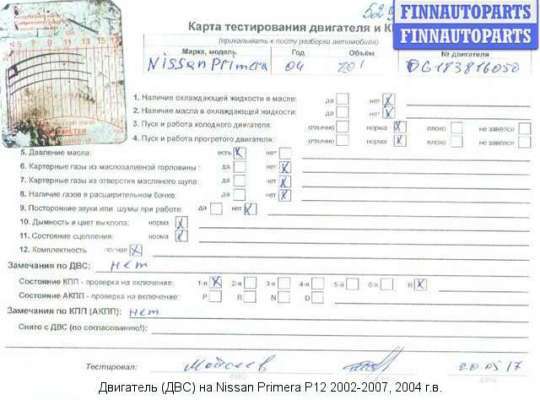 FINNAUTOPARTS
FINNAUTOPARTS
Карта тестирования двигателя и К
(прикалывать к посту разборки автомобиля)
Марка, модель Год Объём № двигателя
Nissan Primera 04 20i
1. Наличие охлаждающей жидкости в масле: да нет
2. Наличие масла в охлаждающей жидкости: да нет
3. Пуск и работа холодного двигателя: отлично норма плохо не завелся
4. Пуск и работа прогретого двигателя: отлично норма плохо не завелся
5. Давление масла: есть нет
6. Картерные газы из маслозаливной горловины: да нет
7. Картерные газы из отверстия масляного щупа: да нет
8. Наличие газов в расширительном бачке: да нет
9. Посторонние звуки или шумы при работе: да нет
10. Дымность и цвет выхлопа: норма
11. Состояние сцепления: норма
12. Комплектность полная
Замечания по ДВС: нет
Состояние КПП - проверка на включение: 1-я 2-я 3-я 4-я 5-я 6-я R
Состояние АКПП - проверка на включение: P R N D
Замечания по КПП (АКПП): нет
Снято с ДВС (по согласованию!):
Тестировал: 20.05.17
Двигатель (ДВС) на Nissan Primera P12 2002-2007, 2004 г.в.